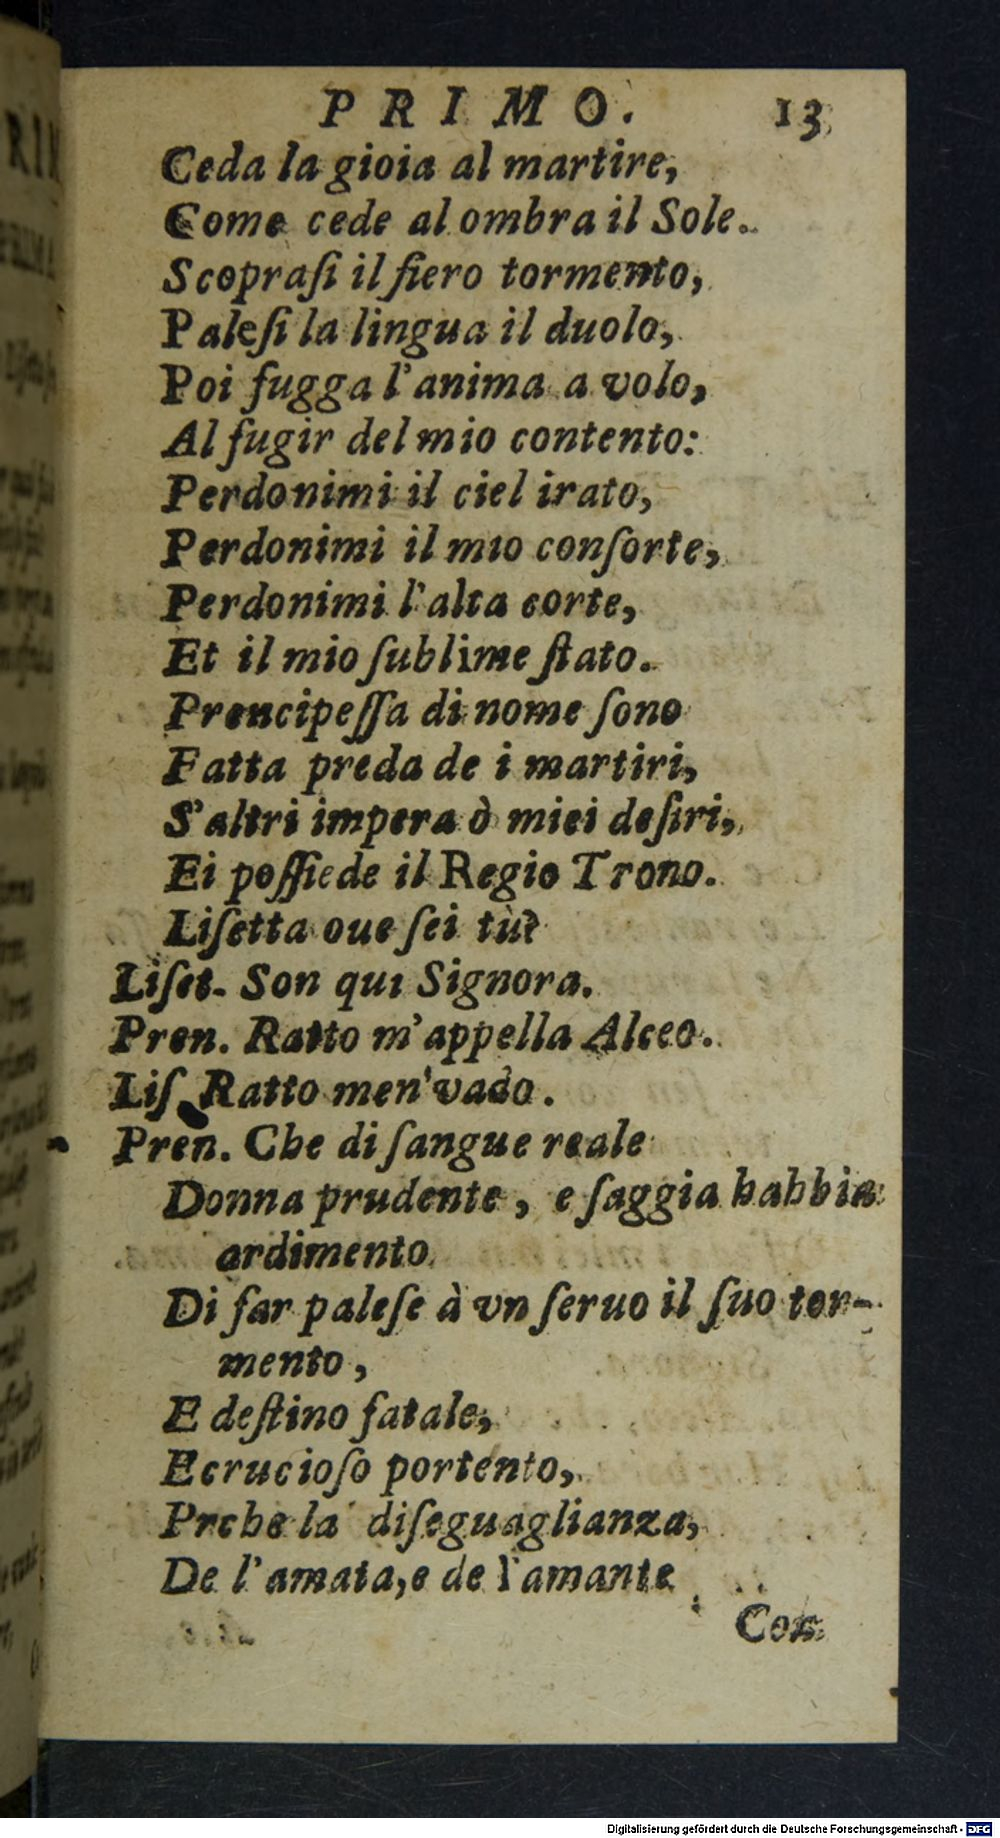 PRIMO. 13
Ceda la gioia al martire,
Come cede al ombra il Sole.
Scopraſi il fiero tormento,
Paleſi la lingua il duolo,
Poi fugga l'anima a volo,
Al fugir del mio contento:
Perdonimi il ciel irato,
Perdonimi il mio conſorte,
Perdonimi l'alta corte,
Et il mio ſublime ſtato.
Prencipeſſa di nome ſono
Fatta preda de i martiri,
S'altri impera ò miei deſiri,
Ei poſſiede il Regio Trono.
Liſetta oue ſei tù?
Liſet. Son qui Signora.
Pren. Ratto m'appella Alceo.
Liſ. Ratto men'vado.
Pren. Che di ſangue reale
Donna prudente, e ſaggia habbia
ardimento
Di far paleſe à vn ſeruo il ſuo tor-
mento,
E deſtino fatale,
Ecrucioſo portento,
Prche la diſeguaglianza,
De l'amata, e de l'amante
Con
Digitalisierung gefördert durch die Deutsche Forschungsgemeinschaft - DFG